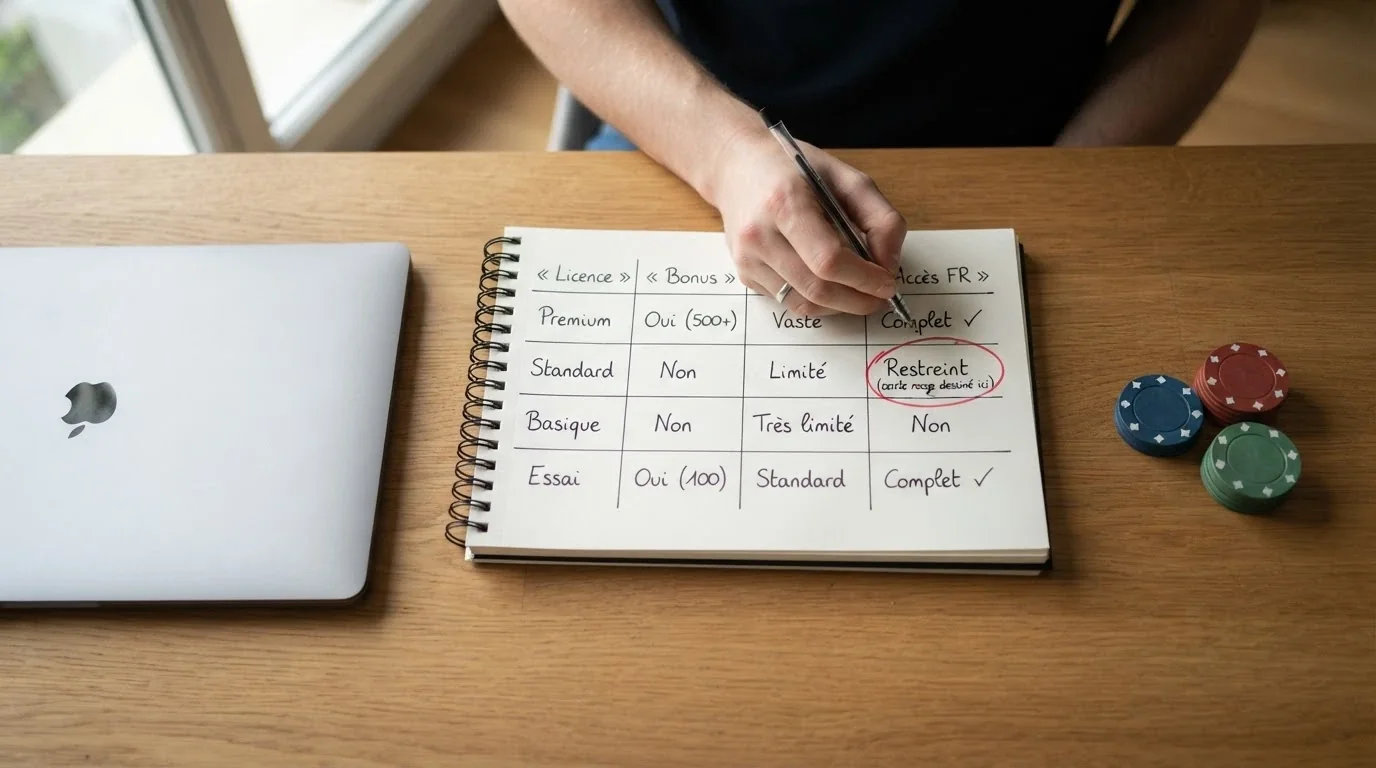 « Licence » « Bonus » Accès FR »
Premium Oui (500+) Vaste Complet ✓
Standard Non Limité Restreint
ici)
Basique Non Très limité Non
Essai Oui (100) Standard Complet ✓